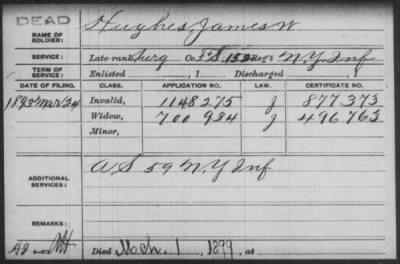 DEAD
NAME OF SOLDIER: Hughes, James W
SERVICE: Late rank Surg Co. F+S. 152 Reg't N.Y. Inf
TERM OF SERVICE: Enlisted , 1 Discharged , 1
DATE OF FILING. CLASS. APPLICATION NO. LAW. CERTIFICATE NO.
1893 Mar 24 Invalid, 1148275 J 877373
Widow, 700934 J 496763
Minor,
ADDITIONAL SERVICES: A S 59 N.Y. Inf
REMARKS:
Died Mch. 1, 1899, at